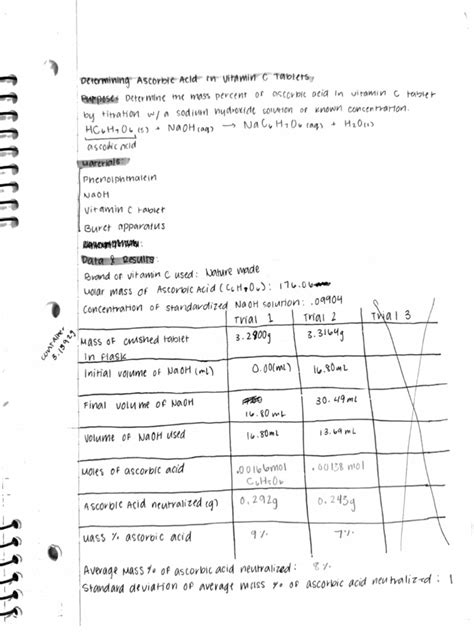 Determining Ascorbic Acid in Vitamin C Tablets
Purpose: Determine the mass percent of ascorbic acid in vitamin C tablet
by titration w/ a sodium hydroxide solution of known concentration.
HC6H7O6 (s) + NaOH(aq) → NaC6H7O6 (aq) + H2O(l)
ascorbic acid
Materials:
Phenolphthalein
NaOH
Vitamin C tablet
Buret apparatus
Data & Results:
Brand of vitamin C used: Nature made
Molar mass of Ascorbic Acid (C6H8O6): 176.06
Concentration of standardized NaOH solution: .09904
Trial 1 Trial 2 Trial 3
container
3.1392g
Mass of crushed tablet in flask 3.2900g 3.3164g
Initial volume of NaOH (mL) 0.00(mL) 16.80mL
Final volume of NaOH 16.80mL 30.49mL
Volume of NaOH used 16.80mL 13.69mL
Moles of ascorbic acid .00166mol C6H8O6 .00138 mol
Ascorbic Acid neutralized (g) 0.292g 0.243g
Mass % ascorbic acid 9% 7%
Average Mass % of ascorbic acid neutralized: 8%
Standard deviation of average mass % of ascorbic acid neutralized: 1